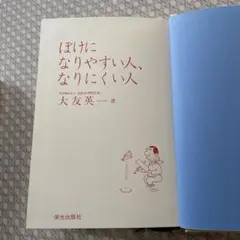 ぼけに
なりやすい人、
なりにくい人
大友英一 著
栄光出版社